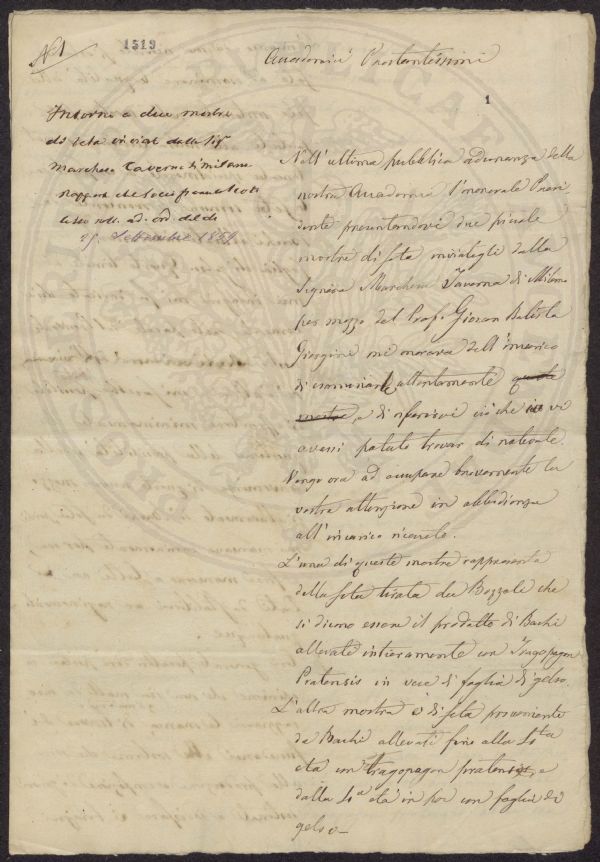 N.° 1
1519
Accademici Prestantissimi
1
Intorno a due mostre
di seta inviate dalla Sig.ra
Marchesa Taverna di Milano
Rapporto del Socio
letto nell' ad. ord. del dì
25 Settembre 1859
Nell' ultima pubblica adunanza della
nostra Accademia l'onorevole Presi
dente presentandovi due piccole
mostre di seta inviategli dalla
Signora Marchesa Taverna di Milano
per mezzo del Prof. Giovan Batista
Giorgini mi onorava dell' incarico
di esaminarle attentamente queste
mostre e di riferirvi ciò che io vi
avessi potuto trovar di notevole.
Vengo ora ad occupare brevemente la
vostra attenzione in obbedienza
all' incarico ricevuto.
L'una di queste mostre rappresenta
della seta tirata da Bozzoli che
si dicono essere il prodotto di Bachi
allevati intieramente con Tragopogon
Pratensis in vece di foglia di gelso.
L'altra mostra è di seta proveniente
da Bachi allevati fino alla 4.ta
età con tragopogon pratensis, e
dalla 4.a età in poi con foglia di
gelso—